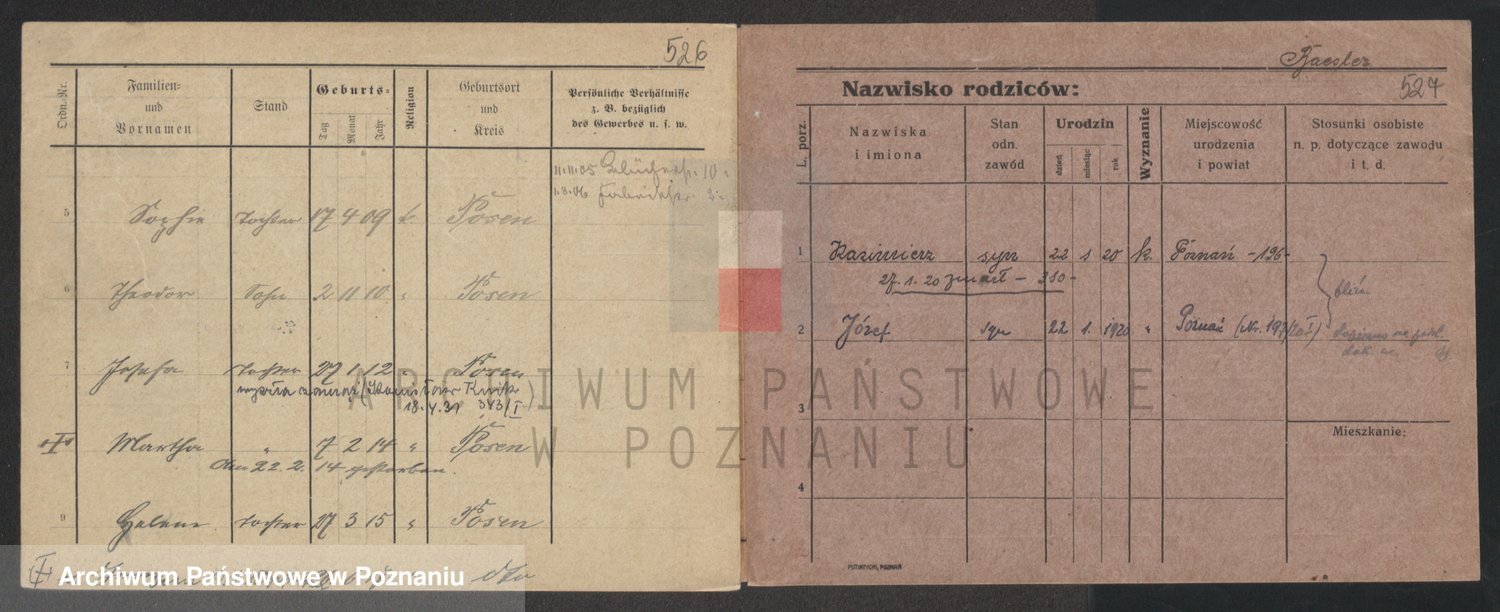 526
Ordn.-Nr.
Familien- und Vornamen
Stand
Geburts-
Tag
Monat
Jahr
Religion
Geburtsort und Kreis
Persönliche Verhältnisse z. B. bezüglich des Gewerbes u. s. w.
11.11.05
10
1.8.06
5 Sophie Tochter 17 4 09 k. Posen
6 Theodor Sohn 2 11 10 " Posen
7 Josefa Tochter 27 1 12 Posen
18.4.31 343/I
Martha " 7 2 14 " Posen
Am 22. 2. 14 gestorben.
9 Helene Tochter 27 3 15 " Posen
dto
Kaesler
527
Nazwisko rodziców:
L. porz.
Nazwiska i imiona
Stan odn. zawód
Urodzin
dzień
miesiąc
rok
Wyznanie
Miejscowość urodzenia i powiat
Stosunki osobiste n. p. dotyczące zawodu i t. d.
1 Kazimierz syn 22 1 20 k. Poznań -196-
27. 1. 20 zmarł - 380 -
bliźn.
2 Józef syn 22 1. 1920 " Poznań (Nr. 197/20 I)
3
Mieszkanie:
4
PUTIATYCKI, POZNAŃ
ARCHIWUM PAŃSTWOWE
W POZNANIU
Archiwum Państwowe w Poznaniu